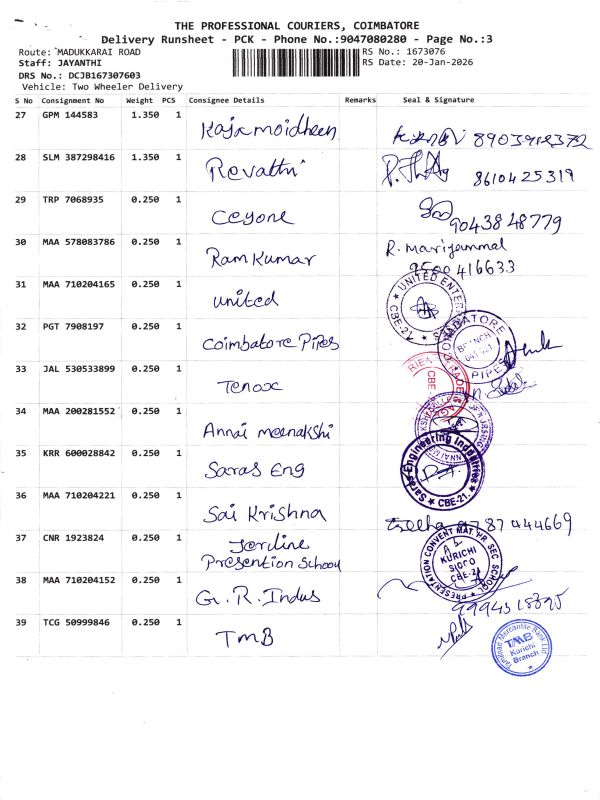 THE PROFESSIONAL COURIERS, COIMBATORE
Delivery Runsheet - PCK - Phone No.:9047080280 - Page No.:3
Route: MADUKKARAI ROAD RS No.: 1673076
Staff: JAYANTHI RS Date: 20-Jan-2026
DRS No.: DCJB167307603
Vehicle: Two Wheeler Delivery
S No Consignment No Weight PCS Consignee Details Remarks Seal & Signature
27 GPM 144583 1.350 1 Kajamoidheen 8903912372
28 SLM 387298416 1.350 1 Revathi 8610425319
29 TRP 7068935 0.250 1 Ceyone 9043848779
30 MAA 578083786 0.250 1 Ram Kumar R. Mariyammal
9500416633
31 MAA 710204165 0.250 1 united UNITED ENTER CBE-21.
32 PGT 7908197 0.250 1 Coimbatore Pipes COIMBATORE PIPES BRANCH
33 JAL 530533899 0.250 1 Tenax CBE
34 MAA 200281552 0.250 1 Annai meenakshi
35 KRR 600028842 0.250 1 Saras Eng Saras Engineering Industries CBE-21.
36 MAA 710204221 0.250 1 Sai Krishna 87444669
37 CNR 1923824 0.250 1 Jerdine
Presention School PRESENTATION CONVENT MAT. HR. SEC. SCHOOL KURICHI SIDCO CBE-21
38 MAA 710204152 0.250 1 G.R. Indus
39 TCG 50999846 0.250 1 TMB Tamilnad Mercantile Bank Ltd TMB Kurichi Branch